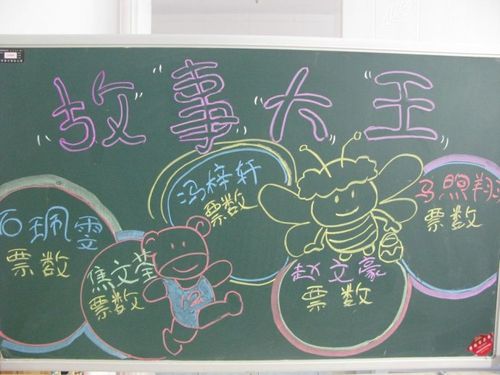 故事大王
冯梓轩
票数
马煦翔
票数
石珮雯
票数
焦文莹
票数
赵立豪
票数
12